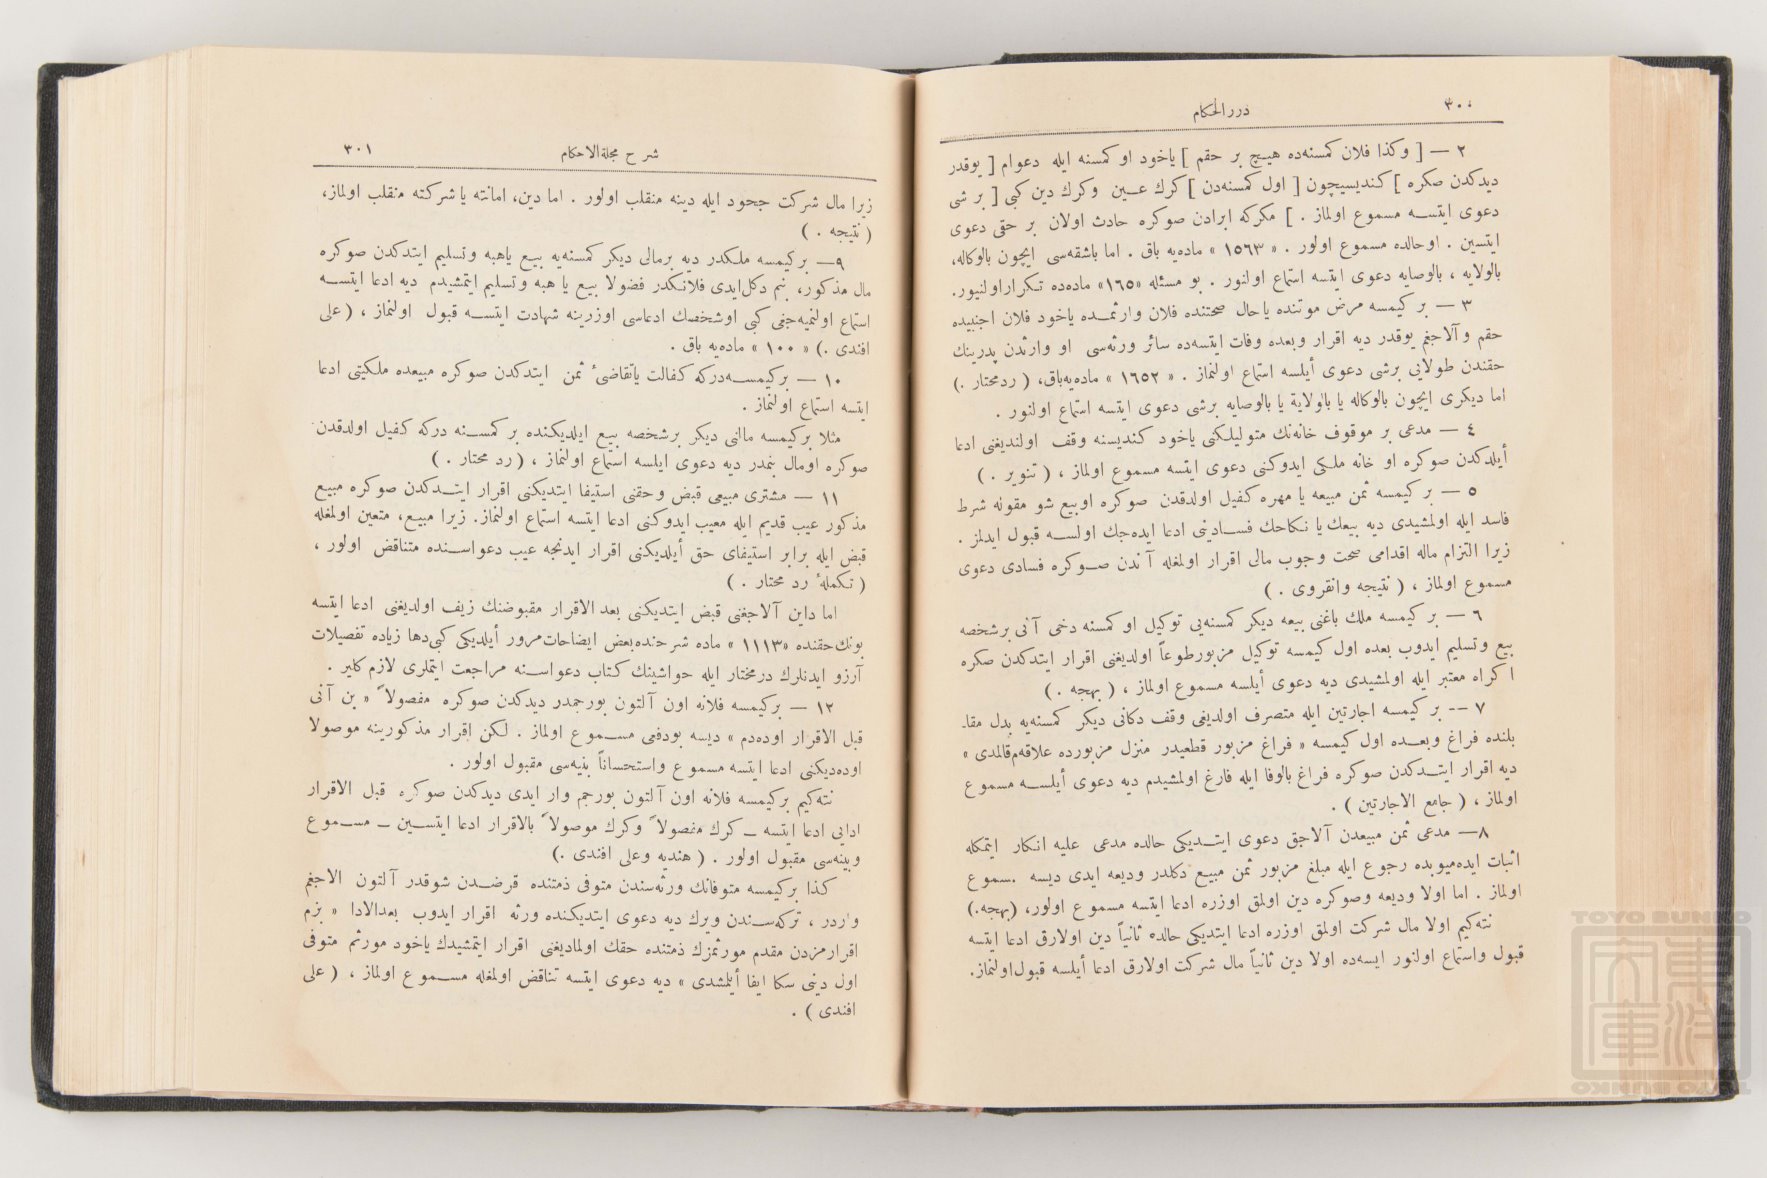 ٣٠٠
درر الحكام
٢ — [ وكذا فلان كمسنه‌ده هيچ بر حقم ] ياخود او كمسنه ايله دعوام [ يوقدر
ديدكدن صكره ] كنديسيچون [ اول كمسنه‌دن ] كرك عين وكرك دين كبى [ بر شى
دعوى ايتسه مسموع اولماز . ] مكركه ابرادن صوكره حادث اولان بر حقى دعوى
ايتسين . اوحالده مسموع اولور . « ١٥٦٣ » ماده‌يه باق . اما باشقه‌سى ايچون بالوكاله،
بالولايه ، بالوصايه دعوى ايتسه استماع اولنور . بو مسئله «١٦٥» ماده‌ده تكراراولنيور.
٣ — بر كيمسه مرض موتنده ياحال صحتنده فلان وارثمده ياخود فلان اجنبيده
حقم وآلاجغم يوقدر ديه اقرار وبعده وفات ايتسه‌ده سائر ورثه‌سى او وارثدن پدرينك
حقندن طولايى برشى دعوى أيلسه استماع اولنماز . « ١٦٥٢ » ماده‌يه‌باق، ( ردمحتار .)
اما ديكرى ايچون بالوكاله يا بالولاية يا بالوصايه برشى دعوى ايتسه استماع اولنور .
٤ — مدعى بر موقوف خانه‌نك متوليلكنى ياخود كنديسنه وقف اولنديغنى ادعا
أيلدكدن صوكره او خانه ملكى ايدوكنى دعوى ايتسه مسموع اولماز ، ( تنوير . )
٥ — بر كيمسه ثمن مبيعه يا مهره كفيل اولدقدن صوكره اوبيع شو مقوله شرط
فاسد ايله اولمشيدى ديه بيعك يا نكاحك فسادينى ادعا ايده‌جك اولسه قبول ايدلمز .
زيرا التزام ماله اقدامى صحت وجوب مالى اقرار اولمغله آندن صوكره فسادى دعوى
مسموع اولماز ، ( نتيجه وانقروى . )
٦ — بر كيمسه ملك باغنى بيعه ديكر كمسنه‌يى توكيل او كمسنه دخى آنى برشخصه
بيع وتسليم ايدوب بعده اول كيمسه توكيل مزبورطوعاً اولديغنى اقرار ايتدكدن صكره
اكراه معتبر ايله اولمشيدى ديه دعوى أيلسه مسموع اولماز ، ( بهجه . )
٧ -- بر كيمسه اجارتين ايله متصرف اولديغى وقف دكانى ديكر كمسنه‌يه بدل مقا-
بلنده فراغ وبعده اول كيمسه « فراغ مزبور قطعيدر منزل مزبورده علاقه‌م‌قالمدى »
ديه اقرار ايتدكدن صوكره فراغ بالوفا ايله فارغ اولمشيدم ديه دعوى أيلسه مسموع
اولماز ، ( جامع الاجارتين ) .
٨— مدعى ثمن مبيعدن آلاجق دعوى ايتديكى حالده مدعى عليه انكار ايتمكله
اثبات ايده‌ميوبده رجوع ايله مبلغ مزبور ثمن مبيع دكلدر وديعه ايدى ديسه مسموع
اولماز . اما اولا وديعه وصوكره دين اولمق اوزره ادعا ايتسه مسموع اولور، (بهجه.)
نته‌كيم اولا مال شركت اولمق اوزره ادعا ايتديكى حالده ثانياً دين اولارق ادعا ايتسه
قبول واستماع اولنور ايسه‌ده اولا دين ثانياً مال شركت اولارق ادعا أيلسه قبول‌اولنماز.
شرح مجلة الاحكام
٣٠١
زيرا مال شركت جحود ايله دينه منقلب اولور . اما دين، امانته ياشركته منقلب اولماز،
( نتيجه . )
٩— بركيمسه ملكدر ديه برمالى ديكر كمسنه‌يه بيع ياهبه وتسليم ايتدكدن صوكره
مال مذكور، بنم دكل‌ايدى فلانكدر فضولا بيع يا هبه وتسليم ايتمشيدم ديه ادعا ايتسه
استماع اولنميه‌جغى كبى اوشخصك ادعاسى اوزرينه شهادت ايتسه قبول اولنماز ، ( على
افندى .) « ١٠٠ » ماده‌يه باق .
١٠ — بركيمسه‌دركه كفالت ياتقاضئ ثمن ايتدكدن صوكره مبيعده ملكيتى ادعا
ايتسه استماع اولنماز .
مثلا بركيمسه مالنى ديكر برشخصه بيع ايلديكنده بر كمسنه دركه كفيل اولدقدن
صوكره اومال بنمدر ديه دعوى ايلسه استماع اولنماز ، ( رد محتار . )
١١ — مشترى مبيعى قبض وحقنى استيفا ايتديكنى اقرار ايتدكدن صوكره مبيع
مذكور عيب قديم ايله معيب ايدوكنى ادعا ايتسه استماع اولنماز. زيرا مبيع، متعين اولمغله
قبض ايله برابر استيفاى حق أيلديكنى اقرار ايدنجه عيب دعواسنده متناقض اولور ،
( تكملهٔ رد محتار . )
اما داين آلاجغنى قبض ايتديكنى بعد الاقرار مقبوضنك زيف اولديغنى ادعا ايتسه
بونك‌حقنده «١١١٣» ماده شرحنده‌بعض ايضاحات‌مرور أيلديكى كبى‌دها زياده تفصيلات
آرزو ايدنلرك درمختار ايله حواشينك كتاب دعواسنه مراجعت ايتملرى لازم كلير .
١٢ — بركيمسه فلانه اون آلتون بورجمدر ديدكدن صوكره مفصولاً « بن آنى
قبل الاقرار اوده‌دم » ديسه بودفعى مسموع اولماز . لكن اقرار مذكورينه موصولا
اوده‌ديكنى ادعا ايتسه مسموع واستحساناً بينه‌سى مقبول اولور .
نته‌كيم بركيمسه فلانه اون آلتون بورجم وار ايدى ديدكدن صوكره قبل الاقرار
ادايى ادعا ايتسه — كرك مفصولاً وكرك موصولاً بالاقرار ادعا ايتسين — مسموع
وبينه‌سى مقبول اولور . ( هنديه وعلى افندى .)
كذا بركيمسه متوفانك ورثه‌سندن متوفى ذمتنده قرضدن شوقدر آلتون الاجغم
واردر ، تركه‌سندن ويرك ديه دعوى ايتديكنده ورثه اقرار ايدوب بعدالادا « بزم
اقرارمزدن مقدم مورثمزك ذمتنده حقك اولماديغنى اقرار ايتمشيدك ياخود مورثم متوفى
اول دينى سكا ايفا أيلمشدى » ديه دعوى ايتسه تناقض اولمغله مسموع اولماز ، ( على
افندى ) .
TOYO BUNKO
東洋文庫
TOYO BUNKO